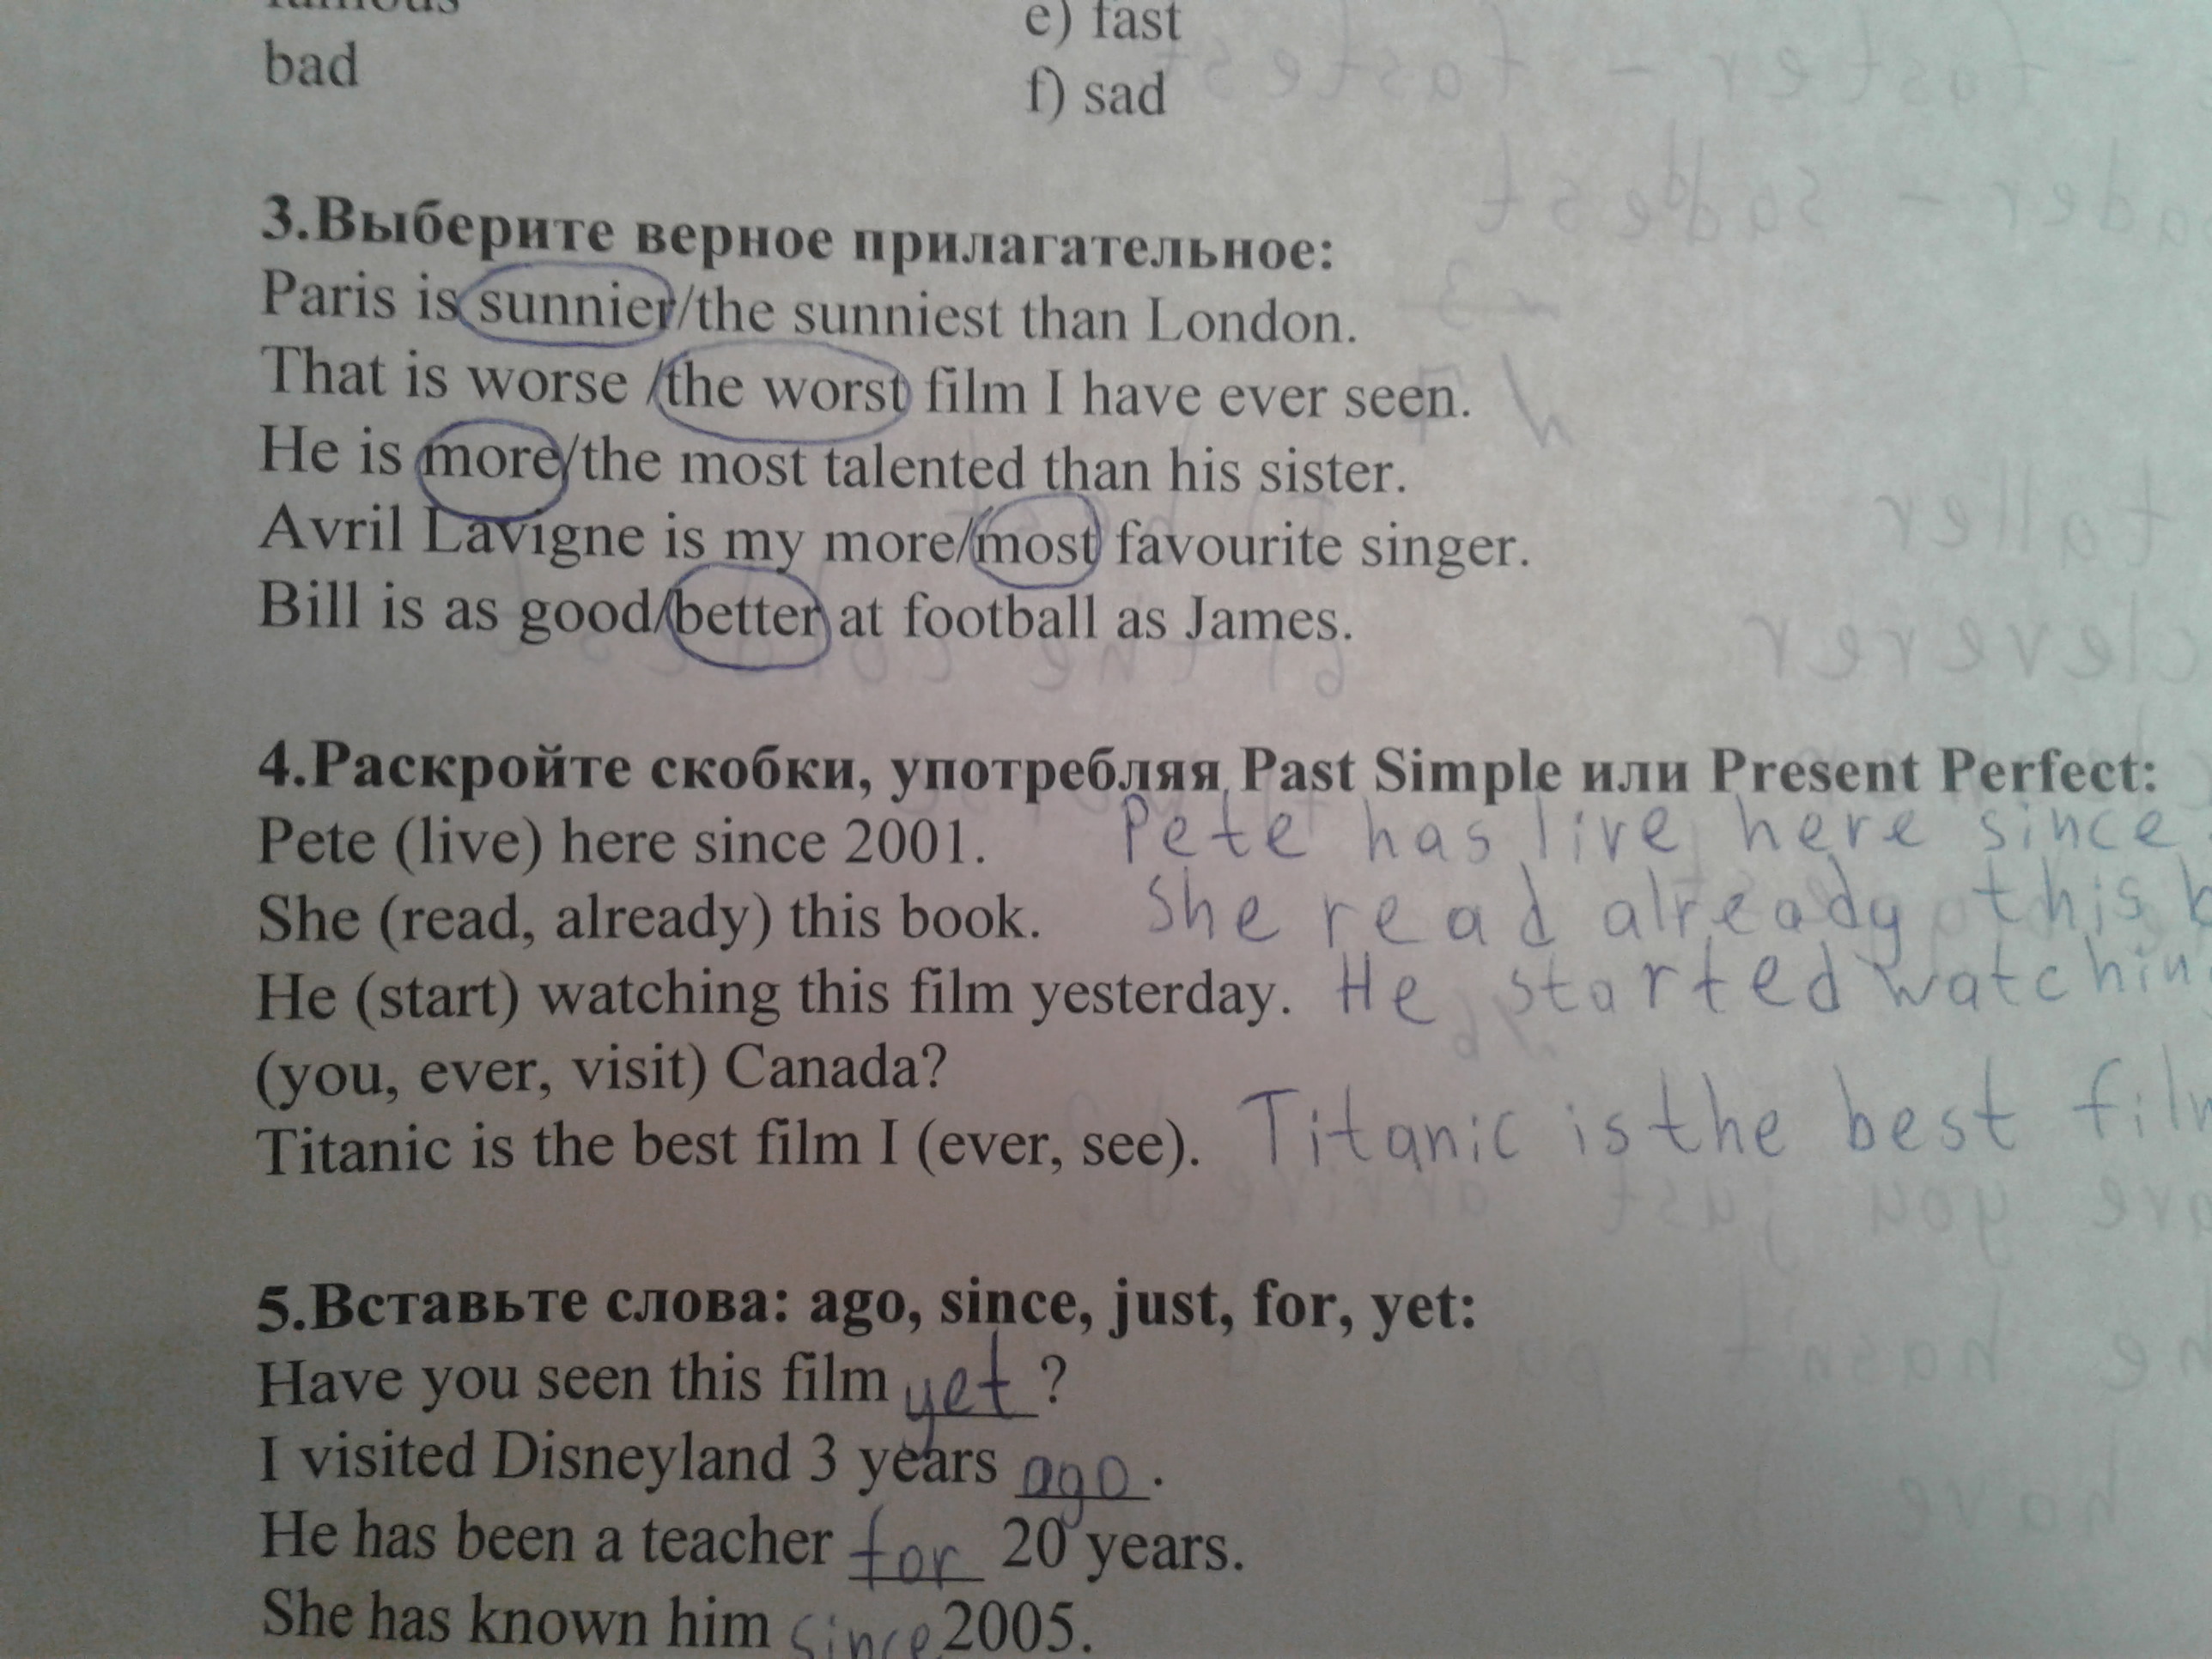 e) fast
bad
f) sad
3.Выберите верное прилагательное:
Paris is sunnier/the sunniest than London.
That is worse /the worst film I have ever seen.
He is more/the most talented than his sister.
Avril Lavigne is my more/most favourite singer.
Bill is as good/better at football as James.
4.Раскройте скобки, употребляя Past Simple или Present Perfect:
Pete (live) here since 2001. Pete has live here since
She (read, already) this book. She read already this
He (start) watching this film yesterday. He started watchin
(you, ever, visit) Canada?
Titanic is the best film I (ever, see). Titanic is the best film
5.Вставьте слова: ago, since, just, for, yet:
Have you seen this film yet ?
I visited Disneyland 3 years ago .
He has been a teacher for 20 years.
She has known him since 2005.